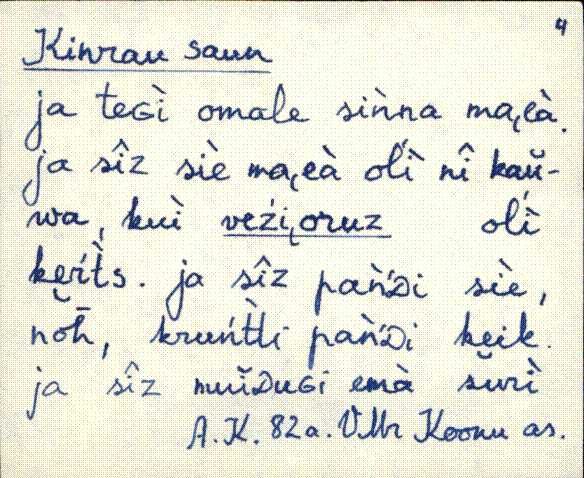 4
Kihrau saun
ja teGì omale sìǹna ma͔eà.
ja sîz siè ma͔eà olì nî kaŭ-
wa, kuì veźi͔oruz olì
ke̮ŕt̀s. ja sîz pańDi siè,
nōh, kruńt̀ti pańDi keik.
ja sîz muĭDuGi emà sŭrì
A. K. 82 a. VMr Koonu as.